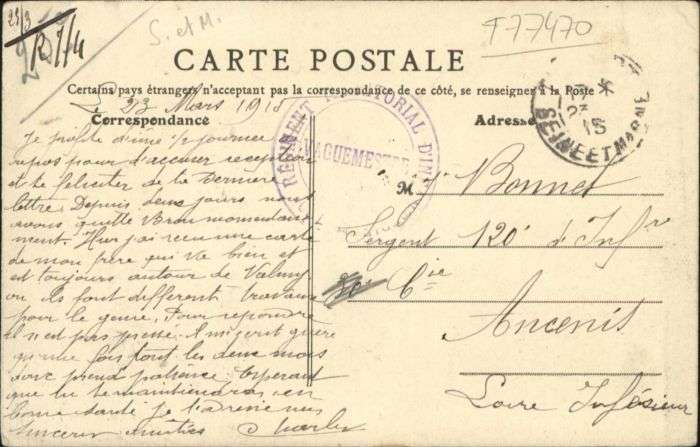 23/3
R 7/4
S. et M.
F77470
CARTE POSTALE
Certains pays étrangers n'acceptent pas la correspondance de ce côté, se renseigner à la Poste
Le 23 Mars 1915
Correspondance
Adresse
RÉGIMENT TERRITORIAL D'INF
VAGUEMESTRE
15
SEINE ET MARNE
Je profite d'une 1/2 journée
repos pour d'accuser reception
et te feliciter de ta dernière
lettre. Depuis deux jours nous
avons quitté momentané
ment. Hier j'ai reçu une carte
de mon frère qui va bien et
est toujours autour de Valmy
ou ils font different travaux
pour le genie. Pour repondre
il n'est pas pressé. Il m'ecrit guere
qu'une fois tout les deux mois
donc prend patience. Esperant
que tu te maintiendras en
bonne santé je t'adresse mes
sinceres amitiés Charles
M Bonnet
Sergent 120e d'Infrie
Cie
Ancenis
Loire Inférieure